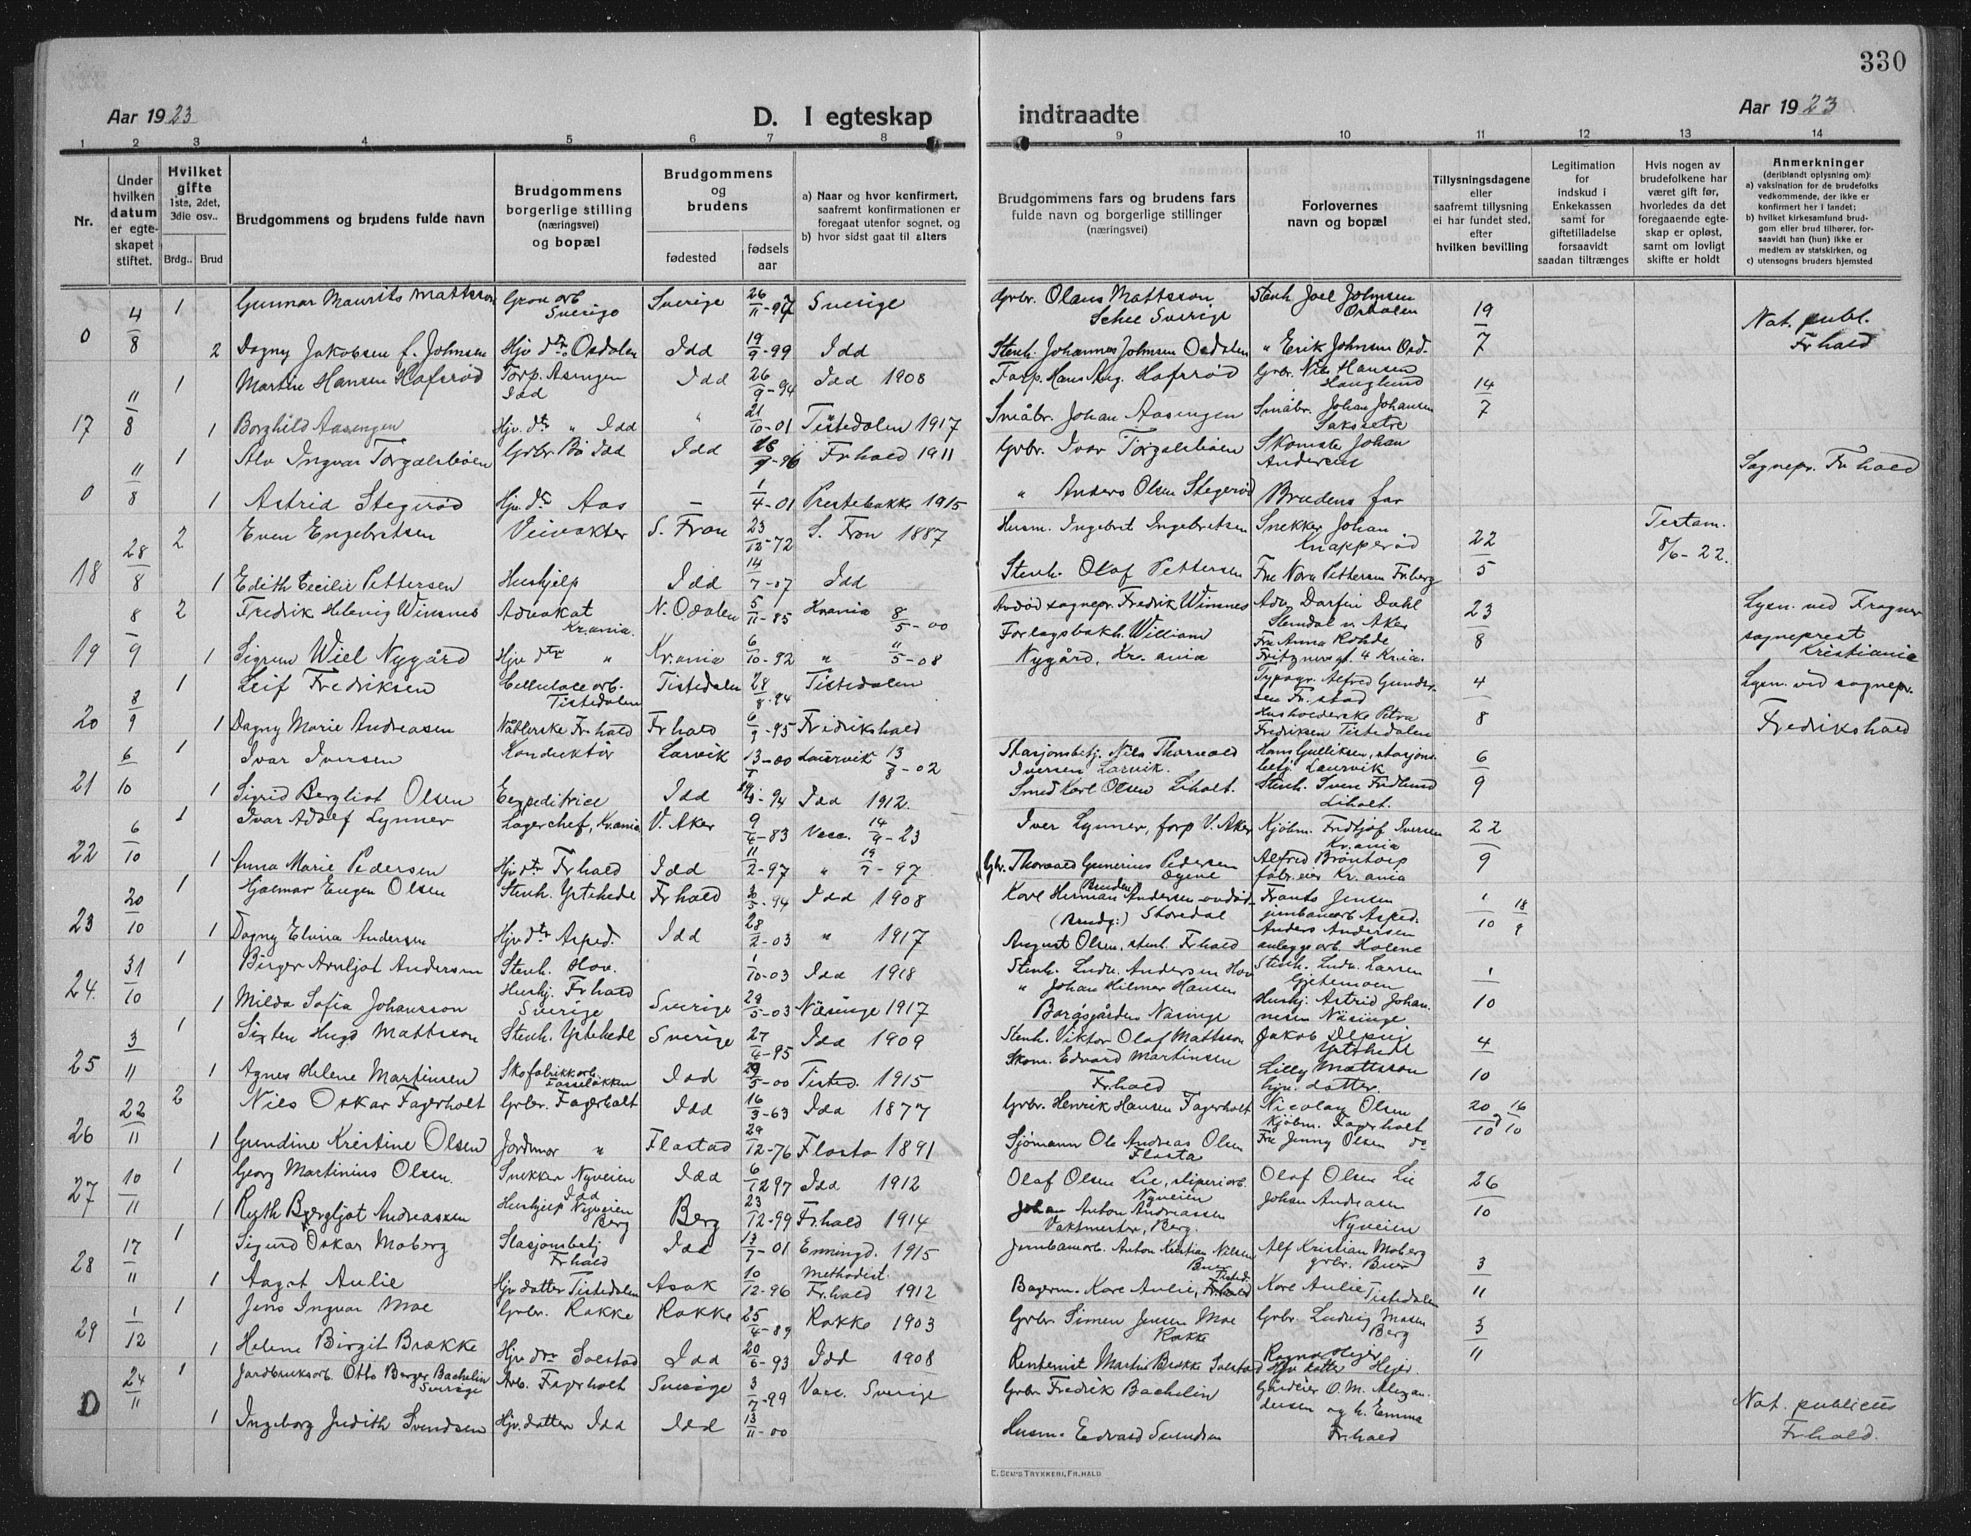 330
Aar 1923
D. I egteskap indtraadte
Aar 1923
1 2 3 4 5 6 7 8 9 10 11 12 13 14
Nr.
Under hvilken datum er egteskapet stiftet.
Hvilket gifte 1ste, 2det, 3die osv..
Brdg.. Brud
Brudgommens og brudens fulde navn
Brudgommens borgerlige stilling (næringsvei) og bopæl
Brudgommens og brudens
fødested
fødsels aar
a) Naar og hvor konfirmert, saafremt konfirmationen er foregaat utenfor sognet, og
b) hvor sidst gaat til alters
Brudgommens fars og brudens fars fulde navn og borgerlige stillinger (næringsvei)
Forlovernes navn og bopæl
Tillysningsdagene eller saafremt tillysning ei har fundet sted, efter hvilken bevilling
Legitimation for indskud i Enkekassen samt for giftetilladelse forsaavidt saadan tiltrænges
Hvis nogen av brudefolkene har været gift før, hvorledes da det foregaaende egteskap er opløst, samt om lovligt skifte er holdt
Anmerkninger (deriblandt oplysning om):
a) vaksination for de brudefolks vedkommende, der ikke er konfirmert her i landet;
b) hvilket kirkesamfund brudgom eller brud tilhører, forsaavidt han (hun) ikke er medlem av statskirken, og
c) utensogns bruders hjemsted
0 4/8 1 Gunnar Maurits Mattsson Sverige Sverige 26/11-97 Sverige Grbr. Olaus Mattsson Sverige Stenh. Joel Johnsen 19/7 Nat. publ. Fr.hald
2 Dagny Jakobsen f. Johnsen Hjv. dtr. Osdalen Idd 19/9-99 Idd Stenh. Johannes Johnsen Osdalen " Erik Johnsen
17 11/8 1 Martin Hansen Hafsrød Torp. Asengen Idd Idd 26/9-94 Idd 1908 Hans Aug. Hafsrød Grbr. Nils Hansen Hauglund 14/7
1 Borghild Aasengen Hjv. dtr. " Idd " 21/10-01 Tistedalen 1917 Småbr. Johan Aasengen Småbr. Johan Johansen
0 11/8 1 Alv Ingvar Torgalsbøen Grbr. Bø Idd Idd Fr.hald 1911 Grbr. Ivar Torgalsbøen Johan Andersen Sognepr. Fr.hald
1 Astrid Stegerød Hjv. dtr. Aas — 1/4-01 Prestebakke 1915 " Anders Olsen Stegerød Brudens far
18 28/8 2 Even Engebretsen Veivokter S. Fron 23/12-72 S. Fron 1887 Husm. Ingebret Ingebretsen Snekker Johan Knapperød 22/5 Testam. 8/6-22.
1 Edith Cecilie Pettersen Hushjelp Idd 14/7-07 Idd Stenh. Olaf Pettersen Fru Nora Pettersen Fr.berg
19 8/9 2 Fredrik Helenig Winsnes Advokat Kr.ania N. Odalen 5/11-85 Kr.ania 8/5-00 Avdød sognepr. Fredrik Winsnes Adv. Dorfin Dahl v. Aker 23/8 Lysn. ved Frogner sogneprest Kristiania
1 Sigrun Wiel Nygård Hjv. dtr. " Kr.ania 6/10-92 " 11/5-08 Forlagsbokh. William Nygård, Kr.ania Fru Anna Rohde Fritznersgt. 4 Kr.nia.
20 8/9 1 Leif Fredriksen Celluloce arb. Tistedalen Tistedalen 28/8-94 Tistedalen Typogr. Alfred Gundersen Fr. stad 4/8 Lysn. ved sognepr. Fredrikshald
1 Dagny Marie Andreasen Fr.hald Fr.hald 6/9-95 Fridrikshald Husholderske Petra Fredriksen Tistedalen
21 6/10 1 Ivar Iversen Konduktør Larvik Laurvik 13/8-02 Stasjonsbetj. Nils Thorvald Iversen Larvik. Hans Gulliksen, stasjonsbetj. Laurvik 6/9
1 Sigrid Bergliot Olsen Expeditrice Idd Idd 1912. Smed Karl Olsen Liholt. Stenh. Sven Fredlund Liholt.
22 6/10 1 Ivar Adolf Lynner Lagerchef, Kr.ania V. Aker 9/4-83 Vacc. 14/9-23 Iver Lynner, forp V. Aker Kjøbm. Fridtjof Iversen Kr.ania 22/9
1 Anna Marie Pedersen Hjv. dtr. Fr.hald Idd 11/2-97 " 19/7-97 Grbr. Thorvald Gunerius Pedersen Alfred Brøntorp fabr. eier Kr.ania
23 20/10 1 Hjalmar Eugen Olsen Stenh. Ystehede Fr.hald Idd 1908 Karl Herman Andersen (Bruden) Storedal Frants Jensen jernbanearb. Asped. 1/10 18/9
1 Dagny Elvira Andersen Hjv. dtr. Asped. Idd 28/2-03 " 1917 (Brudg:) August Olsen, stenh. Fr.hald Anders Andersen anleggsarb. Holene
24. 31/10 1 Birger Arnljot Andersen Stenh. Hov. 1/10-03 Idd 1918 Stenh. Ludv. Andersen Hov Stenh. Ludv. Larsen 1/10
1 Milda Sofia Johansson Hushj. Fr.hald Sverige Sverige 29/5-03 Näsinge 1917 " Johan Hilmer Hansen Näsinge Hushj. Astrid Johannesen Näsinge
25 3/11 1 Sixten Hugo Mattsson Stenh. Ystehede Sverige 27/4-95 Idd 1909 Stenh. Viktor Olaf Mattsson Jakob Ystehede 4/10
1 Agnes Helene Martinsen Skofabrikkarb. Idd 29/5-00 Tisted. 1915 Skom. Edvard Martinsen Fr.hald Lilly Mattsson hjv. datter
26 22/11 2 Nils Oskar Fagerholt Grbr. Fagerholt Idd 16/3-63 Idd 1877 Grbr. Henrik Hansen Fagerholt Nicolay Olsen Kjøbm. Fagerholt 20/10 16/10
1 Gundine Kristine Olsen Jordmor " Flostad 29/12-76 Flosta 1891 Sjømann Ole Andreas Olsen Flosta Fru Jenny Olsen do
27 10/11 1 Georg Martinius Olsen. Snekker Nyveien Idd Idd 6/12 97 Idd 1912 Olaf Olsen Lie, sliperiarb. Nyveien Olaf Olsen Lie 26/10
1 Ruth Bergljot Andreassen Hushjelp Nyveien Berg Berg 23/12-99 Fr.hald 1914 Johan Anton Andreassen Vaktmester, Berg. Johan Andreasen Nyveien
28 17/11 1 Sigurd Oskar Moberg Stasjonsbetj. Fr.hald Idd 13/7-01 Enningd. 1915 Jernbanearb. Anton Kristian Nilsen Buer Alf Kristian Moberg grbr. Buer 3/11
1 Aagot Aulie Hjv. datter Tistedalen Asak 10/12-96 Methodist. Fr.hald 1912 Bagerm. Kare Aulie, Tisted. Kare Aulie Tistedalen
29 1/12 1 Jens Ingvar Moe Grbr. Rokke Rokke 25/4-89 Rokke 1903 Grbr. Simen Jensen Moe Rokke Grbr. Ludvig Mosen Berg 3/11
1 Helene Birgit Brække Hjv. dtr. Solstad Idd 20/6-93 Idd 1908 Rentenist Martin Brække Solstad Ragna Hejer Hjv. datter Hejer.
D 24/11 1 Jordbruksarb. Otto Berger Bachelin Sverige Arb. Fagerholt Sverige 3/7-99 Vacc. Sverige Grbr. Fredrik Bachelin Gårdeier O. M. og h. Emma Fr.hald Nat. publicus Fr.hald.
1 Ingeborg Judith Svendsen Hjv. datter Idd Idd 13/11-00 Husm. Edvard Svendsen
E. SEM'S TRYKKERI, FR.HALD